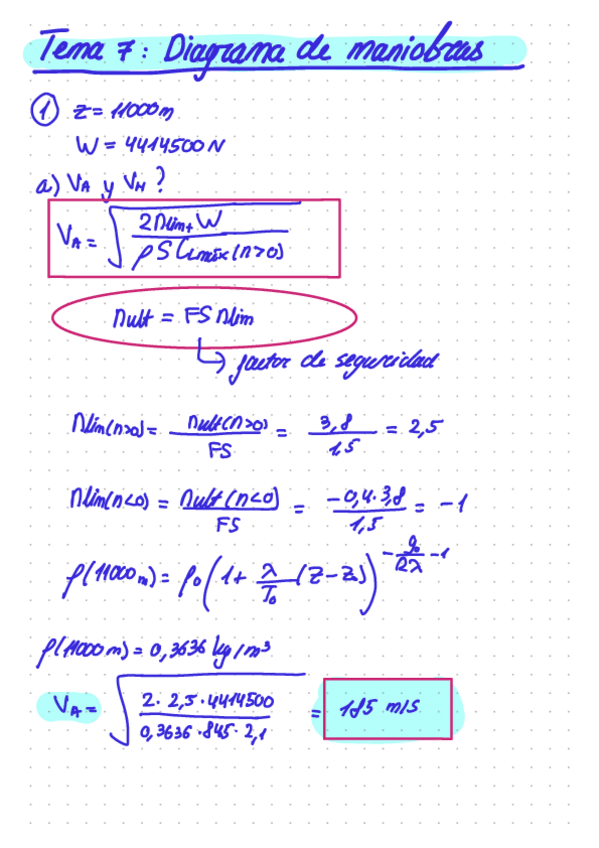 Tema 7: Diagrama de maniobras
① z = 11000m
W = 4414500 N
a) VA y VH ?
VA = √(2 nlim+ W / ρ S CLmáx (n>0))
nult = FS nlim
↳ factor de seguridad
nlim(n>0) = nult(n>0) / FS = 3,8 / 1,5 = 2,5
nlim(n<0) = nult(n<0) / FS = -0,4·3,8 / 1,5 = -1
ρ(11000m) = ρ0 (1 + λ/T0 (z - z0))^(-g0/Rλ - 1)
ρ(11000m) = 0,3636 kg/m³
VA = √(2 · 2,5 · 4414500 / 0,3636 · 845 · 2,1) = 185 m/s